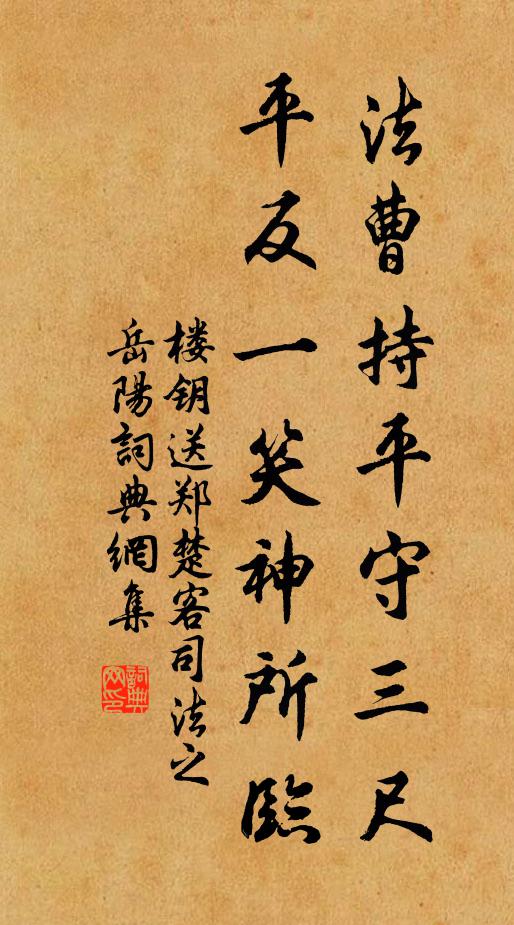 法曹持平守三尺
平反一笑神所臨
楼钥送郑楚客司法之
岳陽詞典網集
詞典
网印